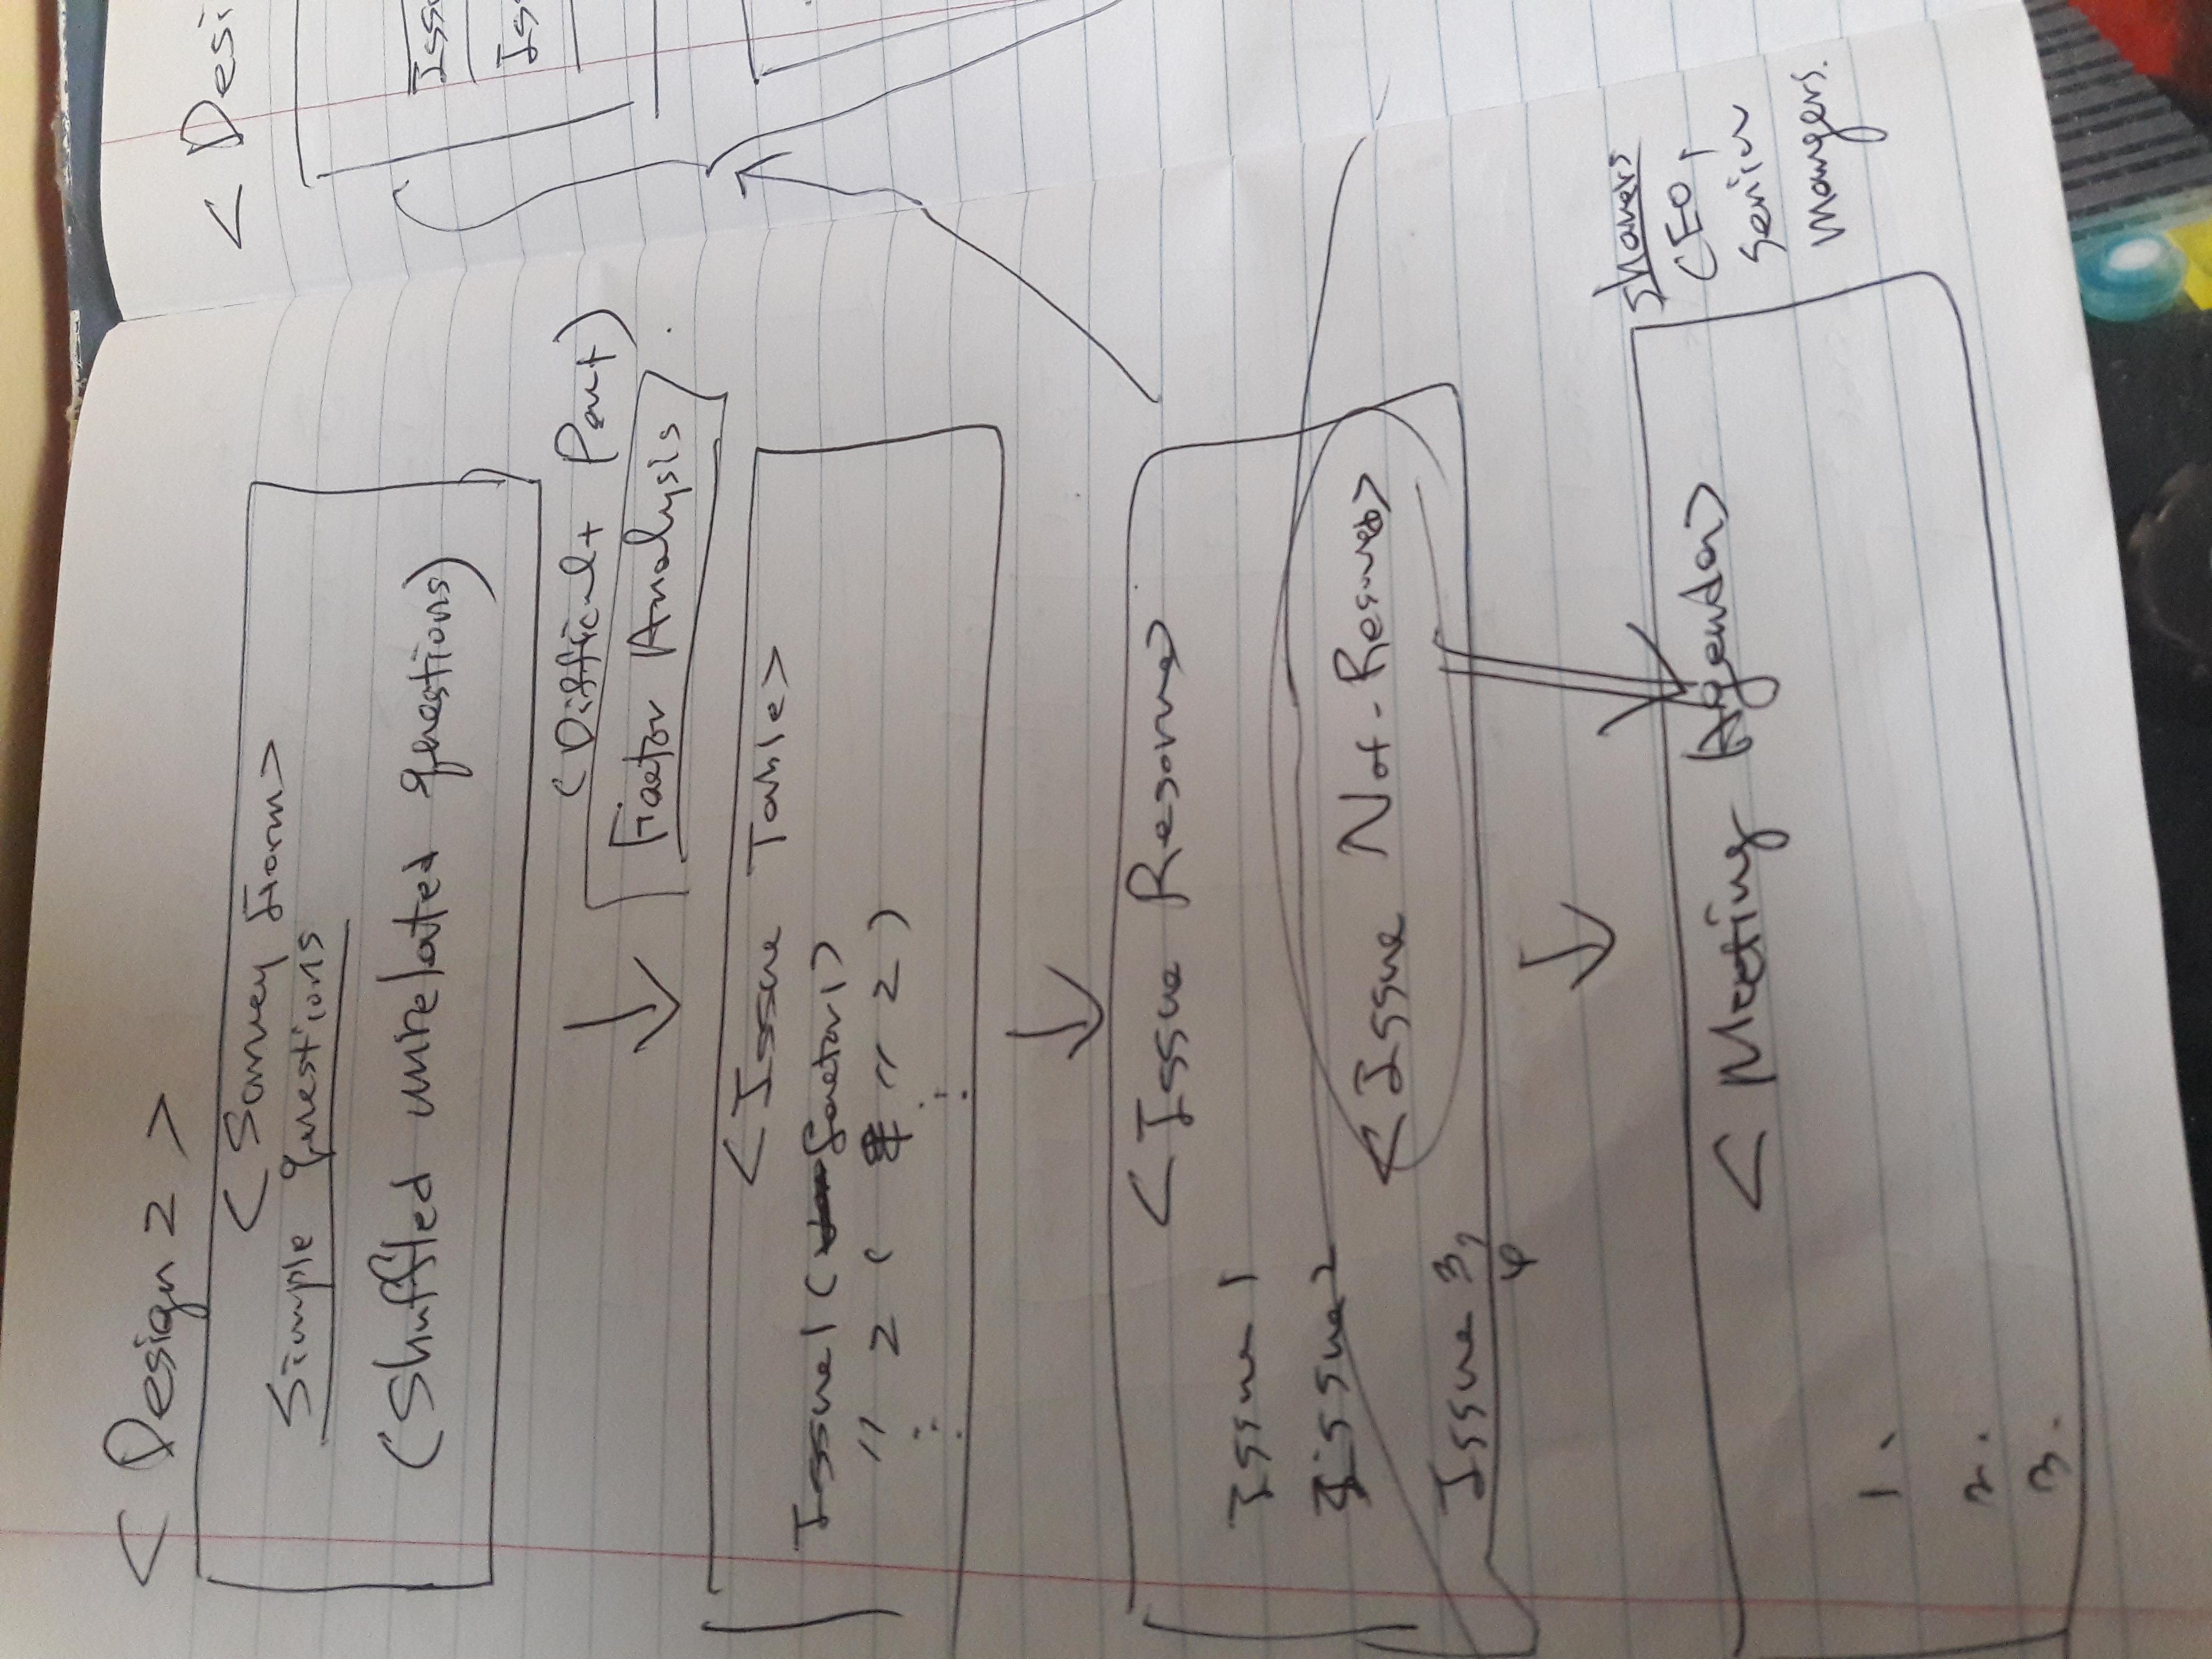 < Design 2 >
< Survey Form >
Simple questions
(Shuffled unrelated questions)
(Difficult Part)
Factor Analysis
< Issue Table >
Issue 1 ( factor 1 )
〃 2 ( 〃 2 )
⋮ ⋮
< Issue >
Issue 1
Issue 2
< Issue Not- >
Issue 3,
4
< Meeting Agenda >
1.
2.
3.
sharers
CEO,
Senior
mangers.
< Desi
Issu
Is